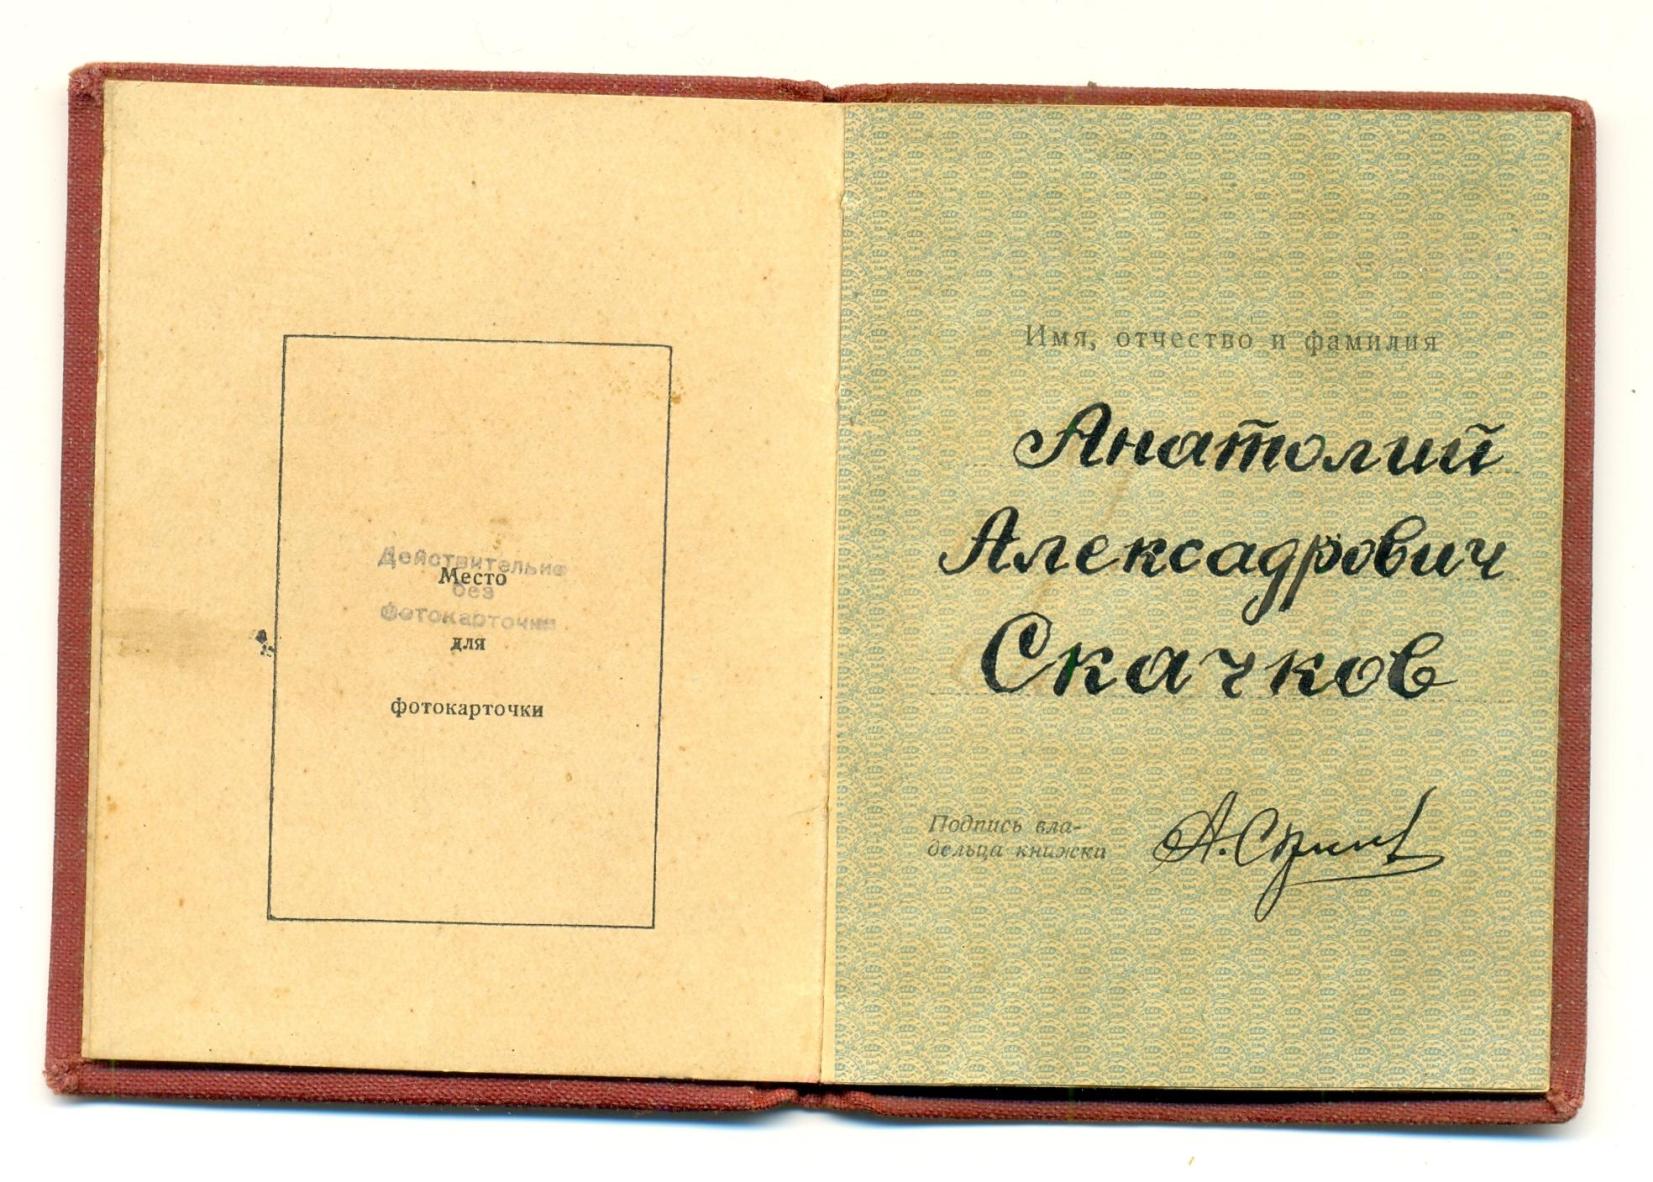 Действительно
Место
без
фотокарточки
для
фотокарточки
Имя, отчество и фамилия
Анатолий
Алексадрович
Скачков
Подпись вла-
дельца книжки